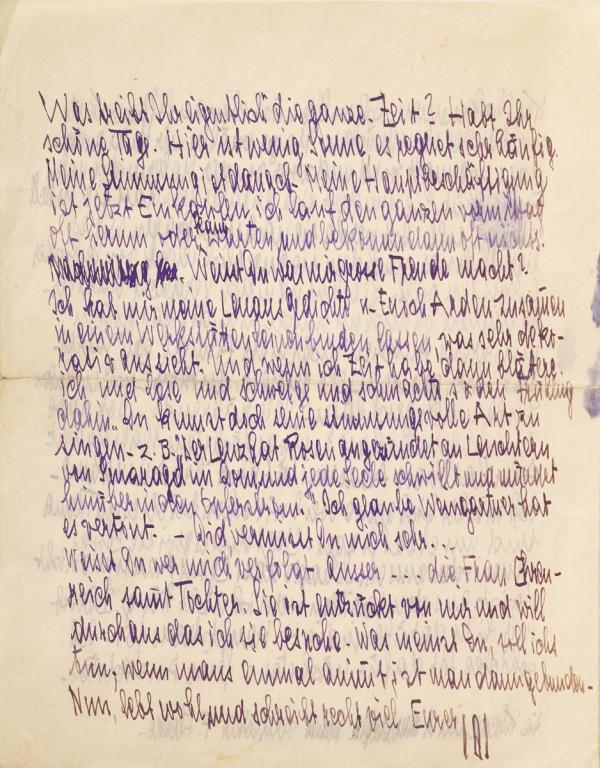 Was treibt Ihr eigentlich die ganze Zeit? Habt Ihr
schöne Tage. Hier ist wenig Sonne es regnet sehr häufig.
Meine Stimmung ist danach. Meine Hauptbeschäftigung
ist jetzt Einkaufen, ich lauf den ganzen vormittag
oft herum oder warten und bekomme dann oft nichts.
Weisst Du was mir grosse Freude macht?
Ich hab mir meine Lenaus Gedichte u. Enoch Arden zusamen
in einem Werkstätten binden lassen, was sehr deko-
rativ aussieht. Und wenn ich Zeit habe dann blättere
ich und lese und schwelge und in den Frühling
dahin. Du kennst doch seine stimmungsvolle Art zu
singen - z. B. "Der Lenz hat Rosen angezündet an Leuchtern
von Smaragd im Dom und jede Seele schwillt und mündet
hinüber in den Opferstrom." Ich glaube Weingartner hat
es vertont. - Sid vermisst Du mich sehr.
Weisst Du wer mich verfolgt unser .... die Frau Ehren-
reich samt Tochter. Sie ist entzückt von mir und will
durchaus das ich sie besuche. Was meinst Du, soll ichs
tun, wenn mans einmal nimmt, ist man dann gebunden.-
Nun, lebt wohl und schreibt recht viel Eurer